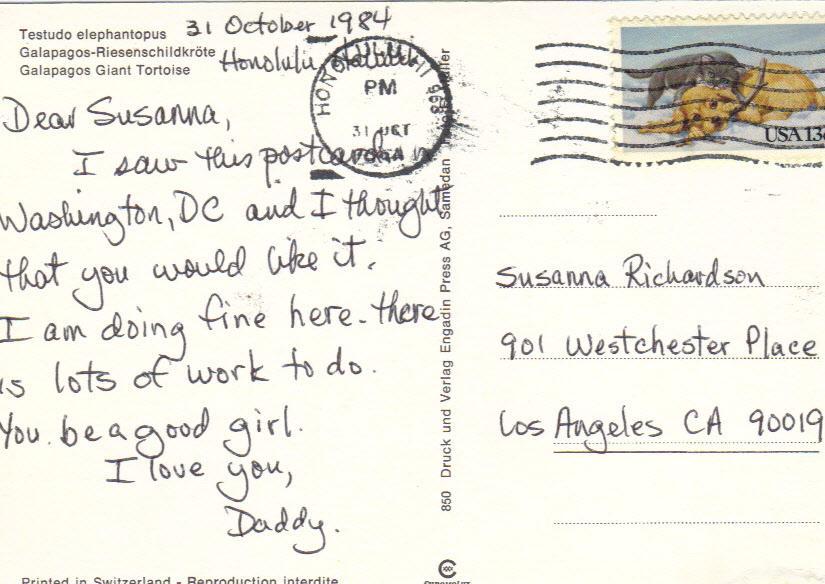 Testudo elephantopus
Galapagos-Riesenschildkröte
Galapagos Giant Tortoise
31 October 1984
Honolulu, Hawaii
Dear Susanna,
I saw this postcard in
Washington, DC and I thought
that you would like it.
I am doing fine here - there
is lots of work to do.
You be a good girl.
I love you,
Daddy.
Printed in Switzerland - Reproduction interdite
HONOLULU, HI 968
PM
31 OCT
850 Druck und Verlag Engadin Press AG, Samedan
USA 13c
Susanna Richardson
901 Westchester Place
Los Angeles CA 90019